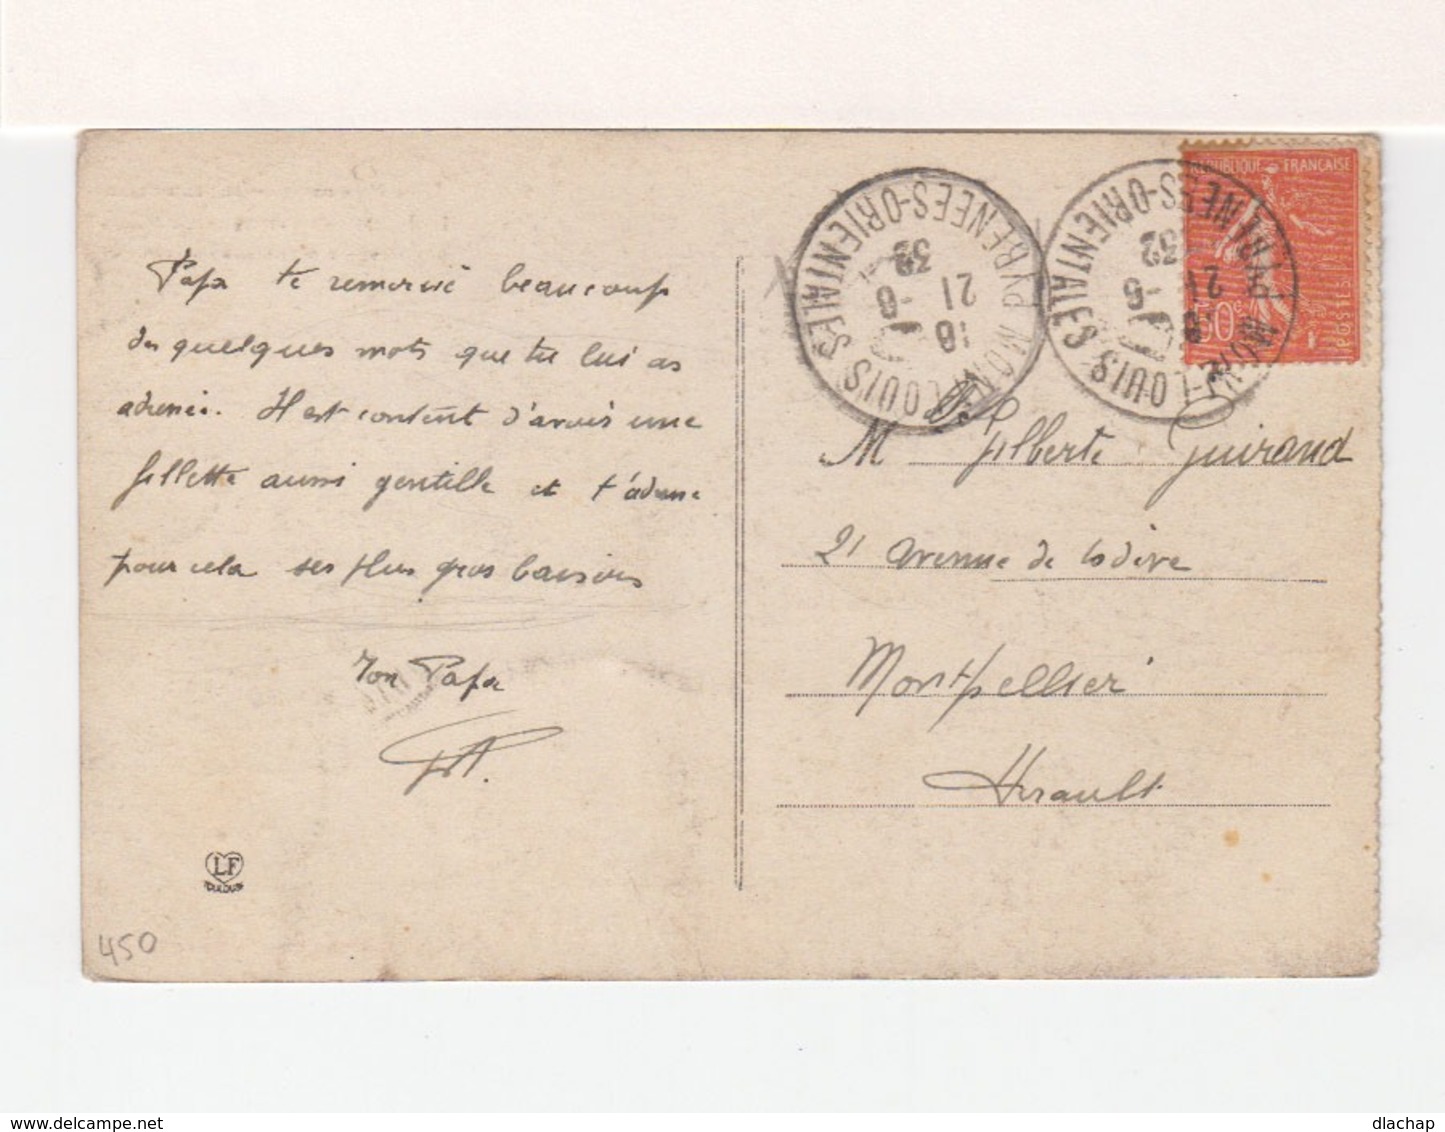 Papa te remercie beaucoup
des quelques mots que tu lui as
adressés. Il est content d'avoir une
fillette aussi gentille et t'adresse
pour cela ses plus gros baisers
Ton Papa
LF
TOULOUSE
450
MONT-LOUIS PYRENEES-ORIENTALES
18
21 -6
32
MONT-LOUIS PYRENEES-ORIENTALES
18
21 -6
32
REPUBLIQUE FRANÇAISE
50c
POSTES
Mlle Gilberte Guiraud
21 avenue de lodève
Montpellier
Hérault
delcampe.net
dlachap